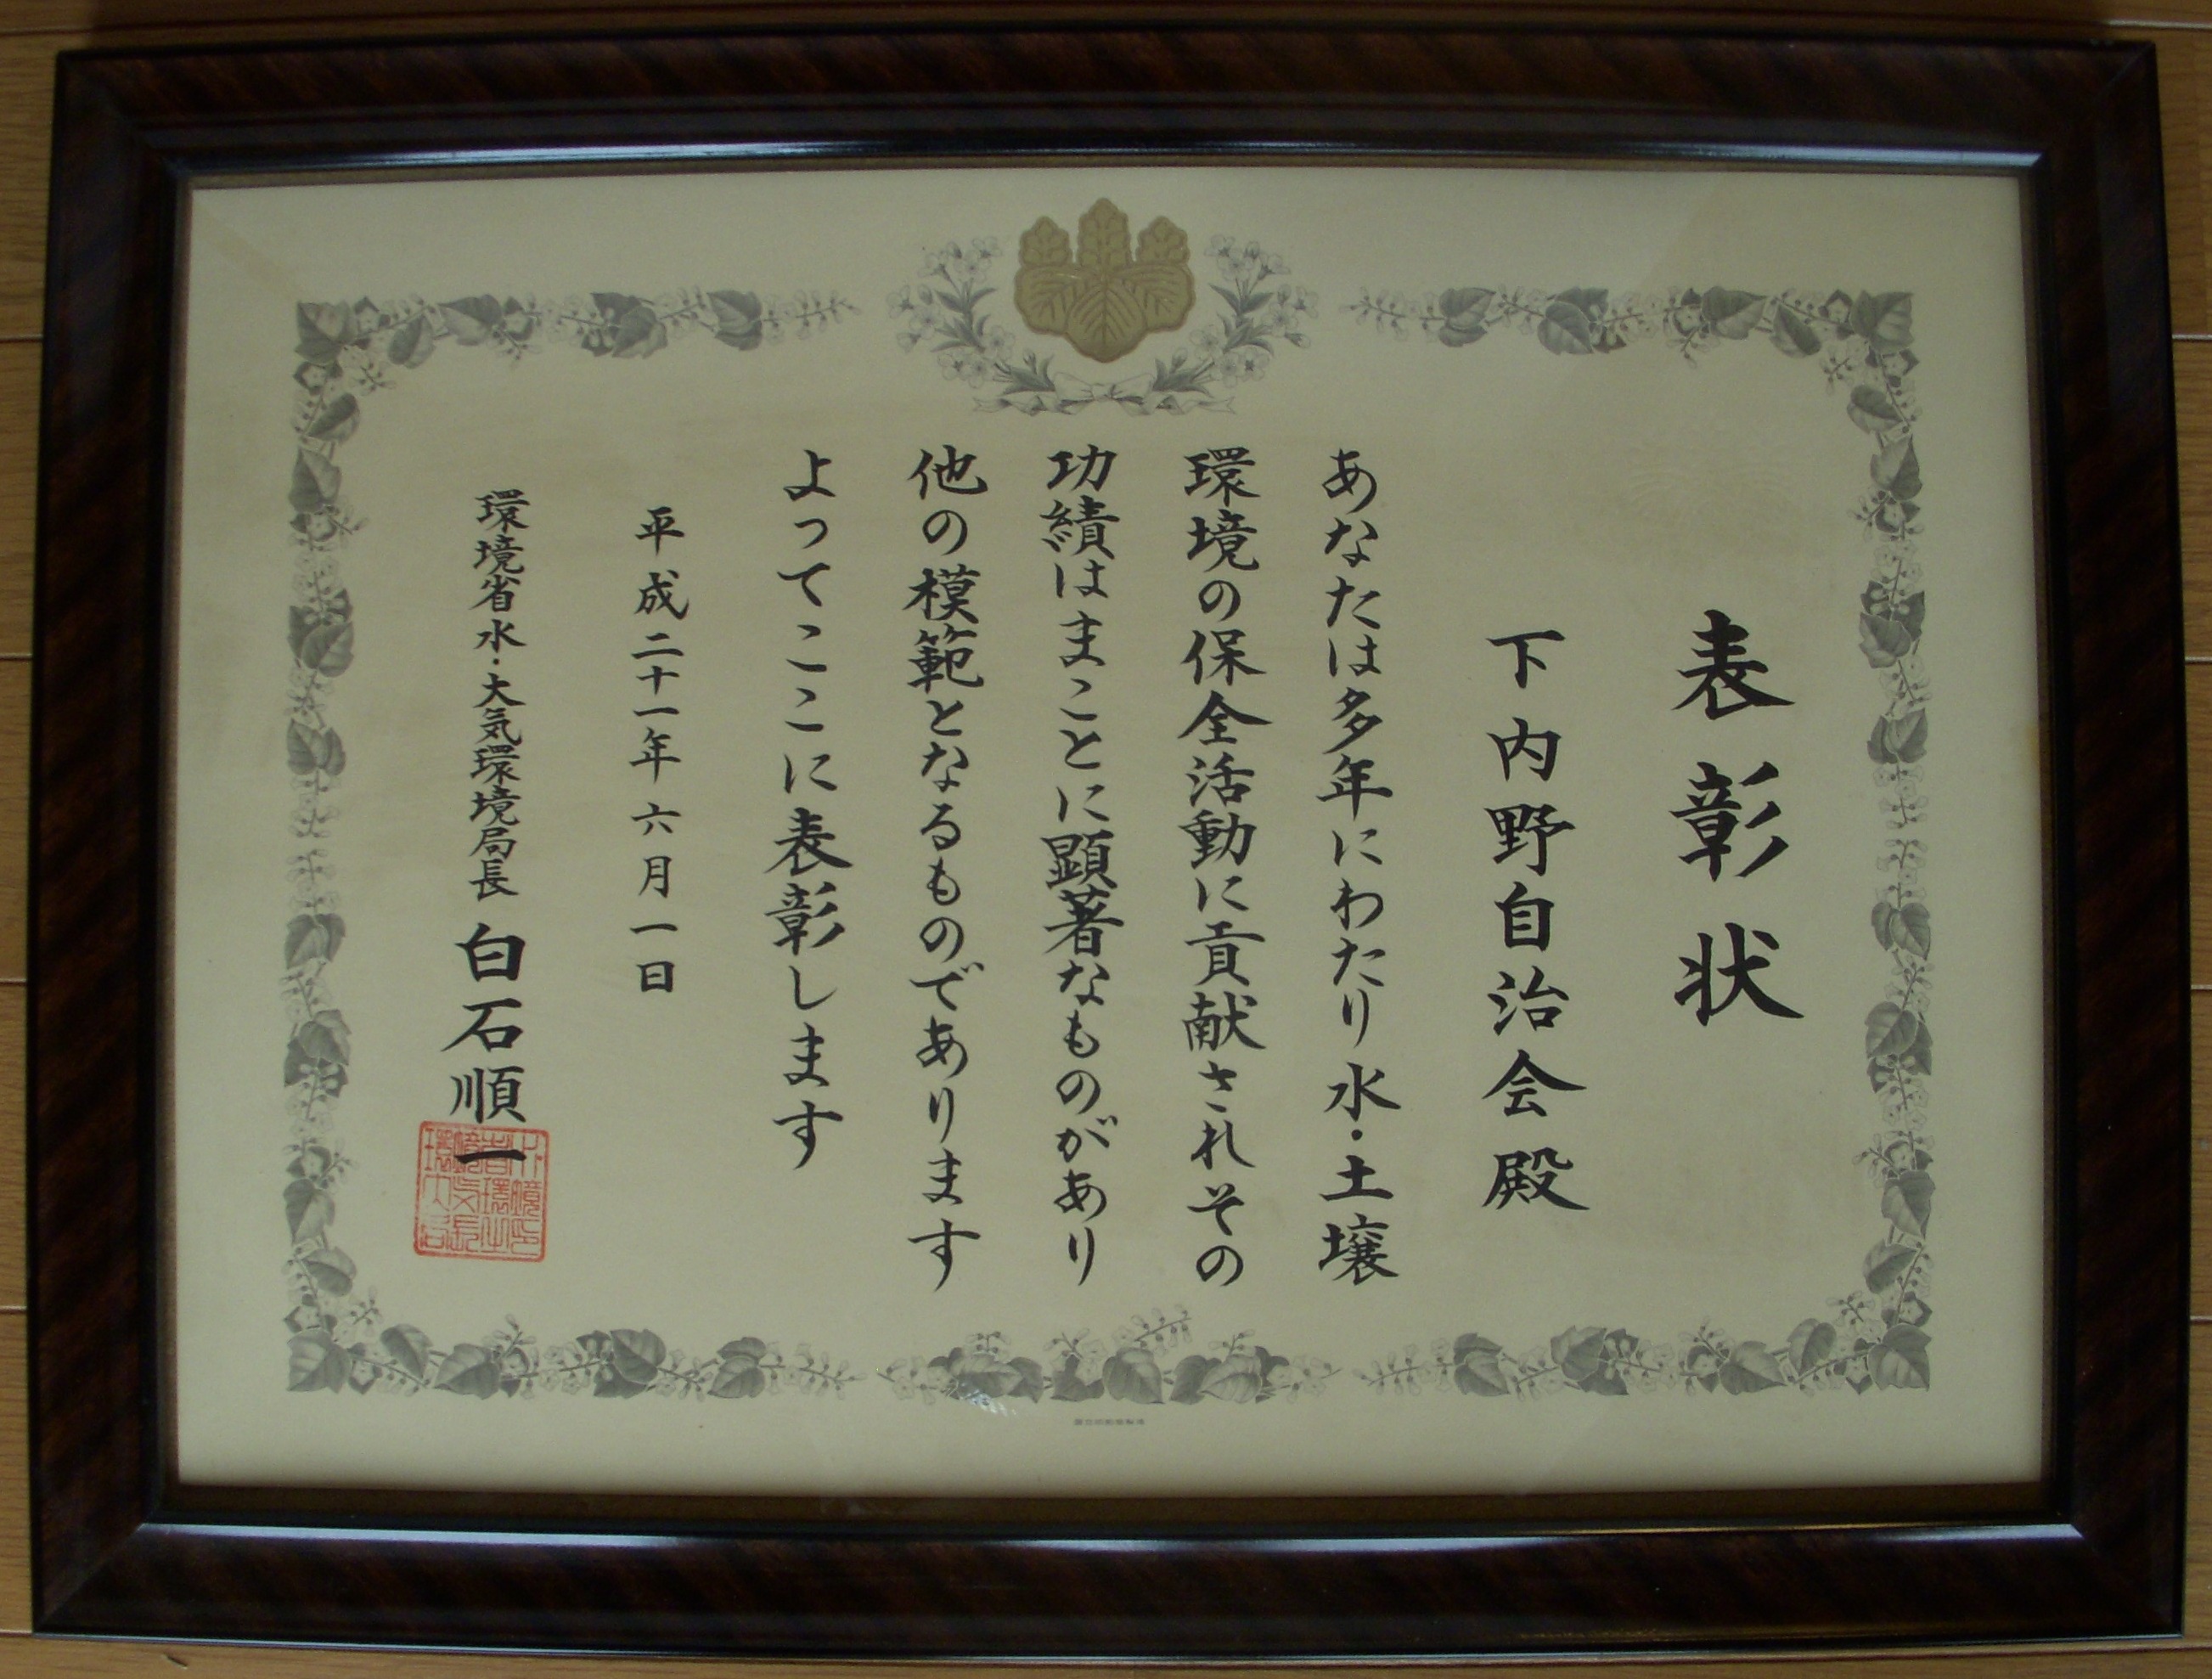 表彰状
下内野自治会殿
あなたは多年にわたり水・土壌
環境の保全活動に貢献されその
功績はまことに顕著なものがあり
他の模範となるものであります
よってここに表彰します
平成二十一年六月一日
環境省水・大気環境局長 白石順一